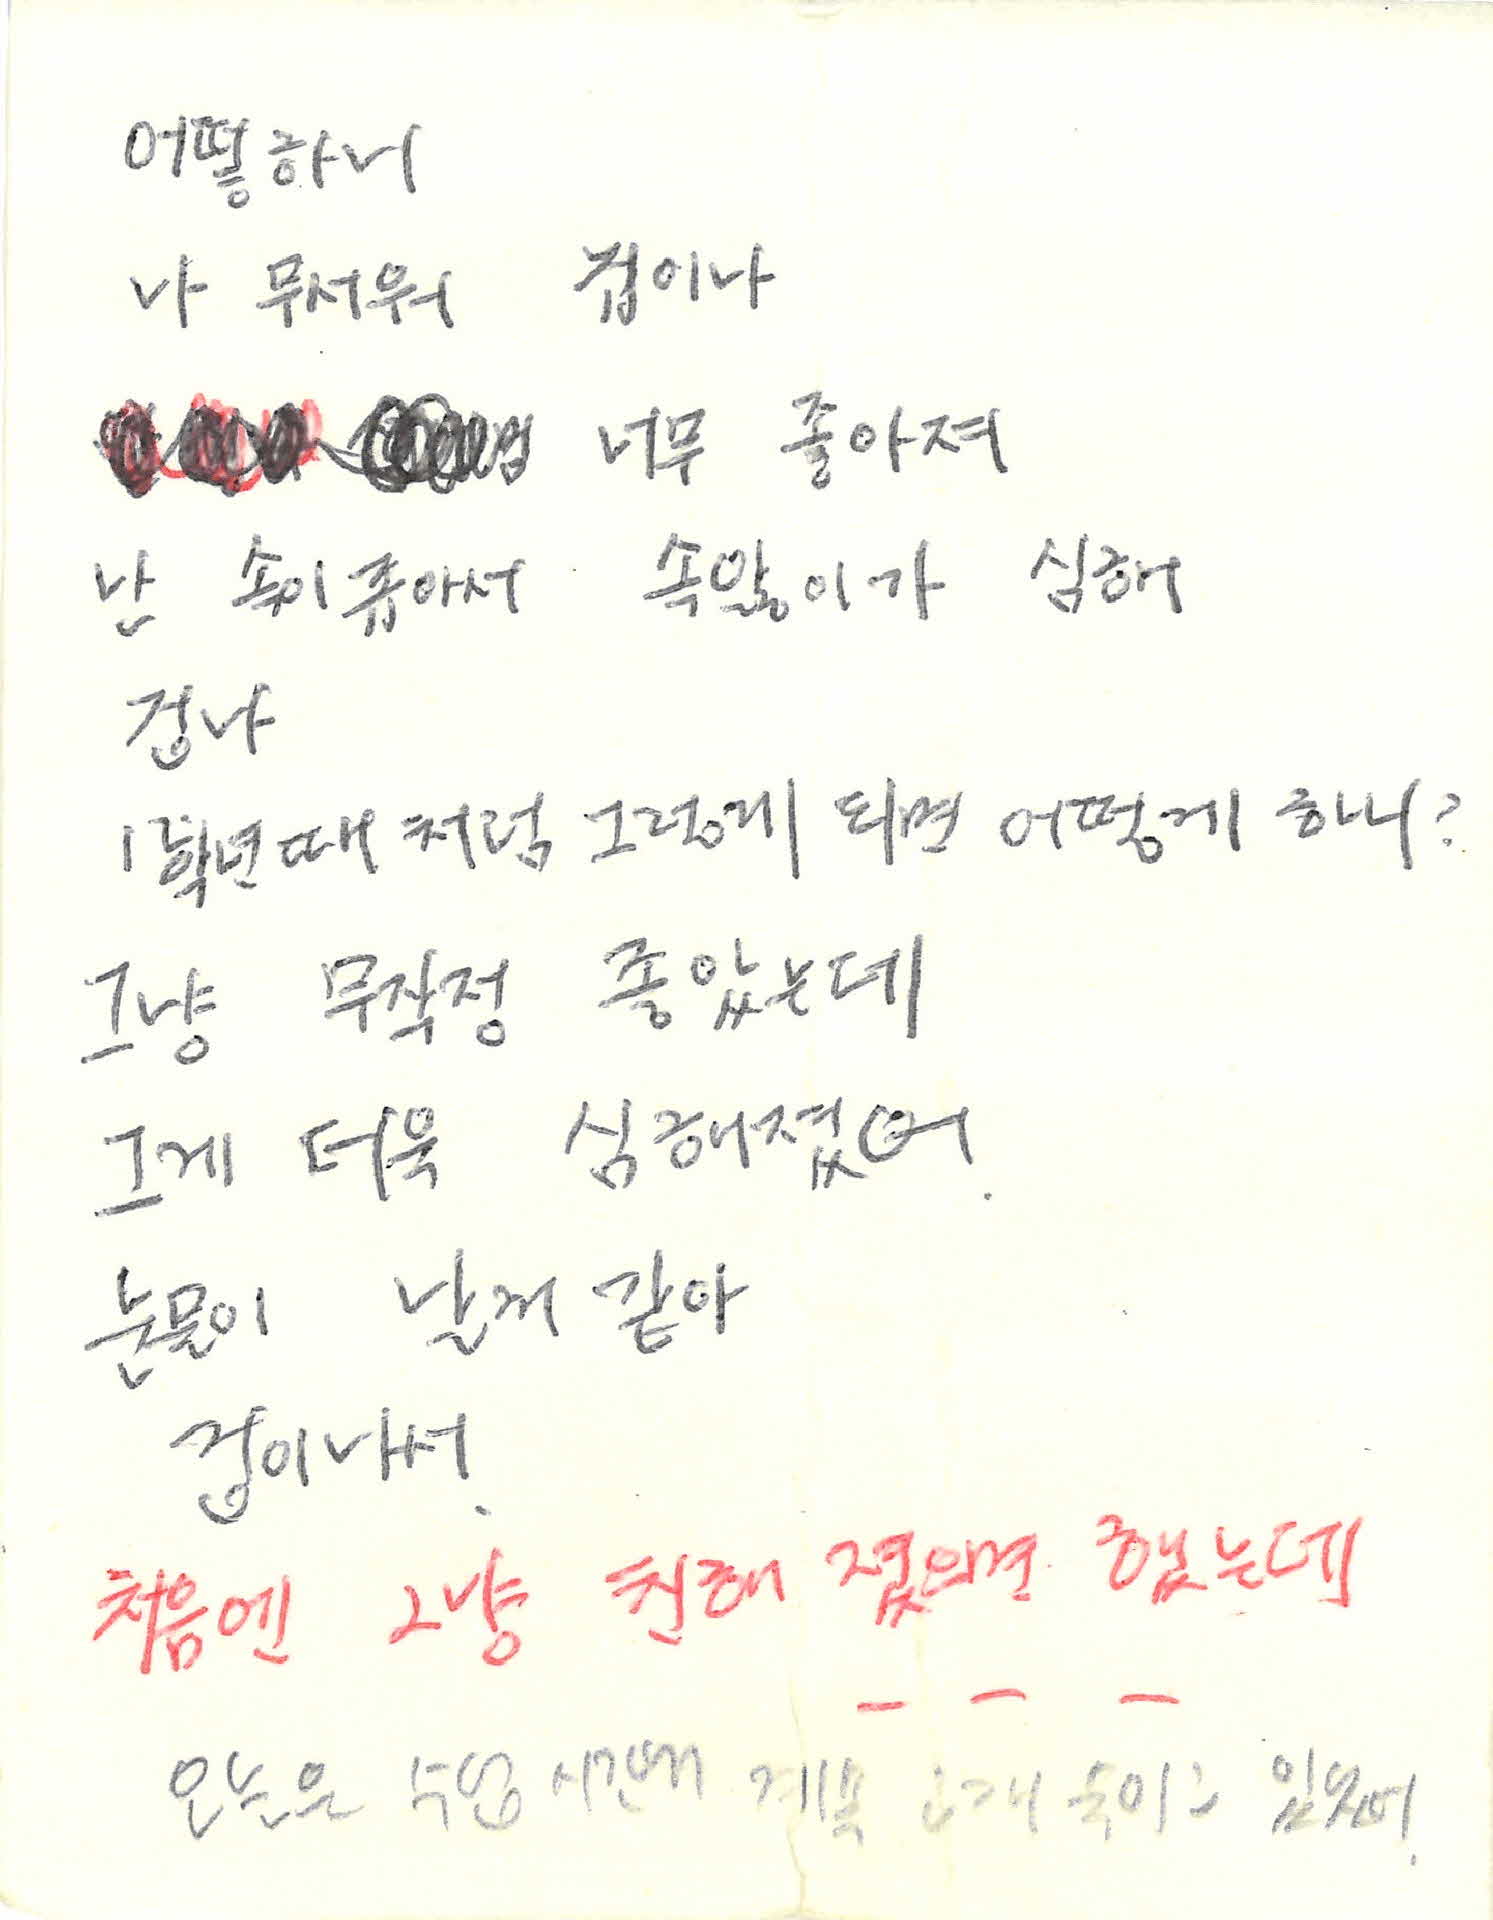 어떻하니
나 무서워 겁이나
너무 좋아져
난 속이좁아서 속앓이가 심해
겁나
1학년때처럼 그렇게 되면 어떻게 하니?
그냥 무작정 좋았는데
그게 더욱 심해졌어.
눈물이 날거 같아
겁이나서.
처음엔 그냥 친해 졌으면 했는데
— — —
오늘은 수업시간때 계속 고개 숙이고 있었어.